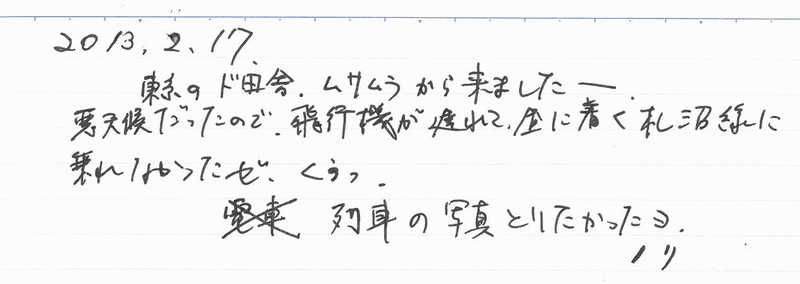 2013.2.17.
東京のド田舎、ムサムラから来ましたー.
悪天候だったので、飛行機が遅れて、昼に着く札沼線に
乗れなかったぜ、くぅっ.
列車の写真とりたかったヨ.
ノリ